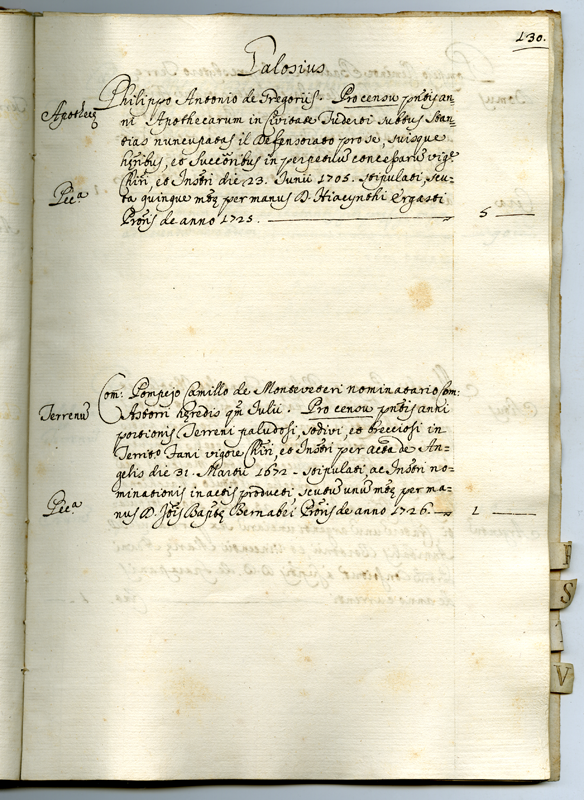 130.
Talosius
Apothecę
Philippo Antonio de Gregoriis. Pro censu pñtis an=
ni Apothecarum in Civitate Tuderti subtus stan=
tias nuncupatas il Defensorato pro se, suisque
hęribus, et Succoribus in perpetuum concessarum vige
Chiri, et Instri die 23. Iunii 1705. stipulati, scu=
Pcca
ta quinque mtę per manus D. Hiacynthi Ergasti
Proris de anno 1725.
5
Terrenū
Com: Pompejo Camillo de Monteveteri nominatario Com:
Astorri hęredis qm Iulii. Pro censu pñtis anni
portionis Terreni paludosi, sodivi, et brecciosi in
Territo Fani vigore Chiri, et Instri per acta de An=
gelis die 31. Martii 1672. stipulati ac Instri no=
minationis in actis producti scutum unū mtę per ma=
Pcca
nus D. Jõis Baptę Bernabei Proris de anno 1726.
1
R
S
T
V